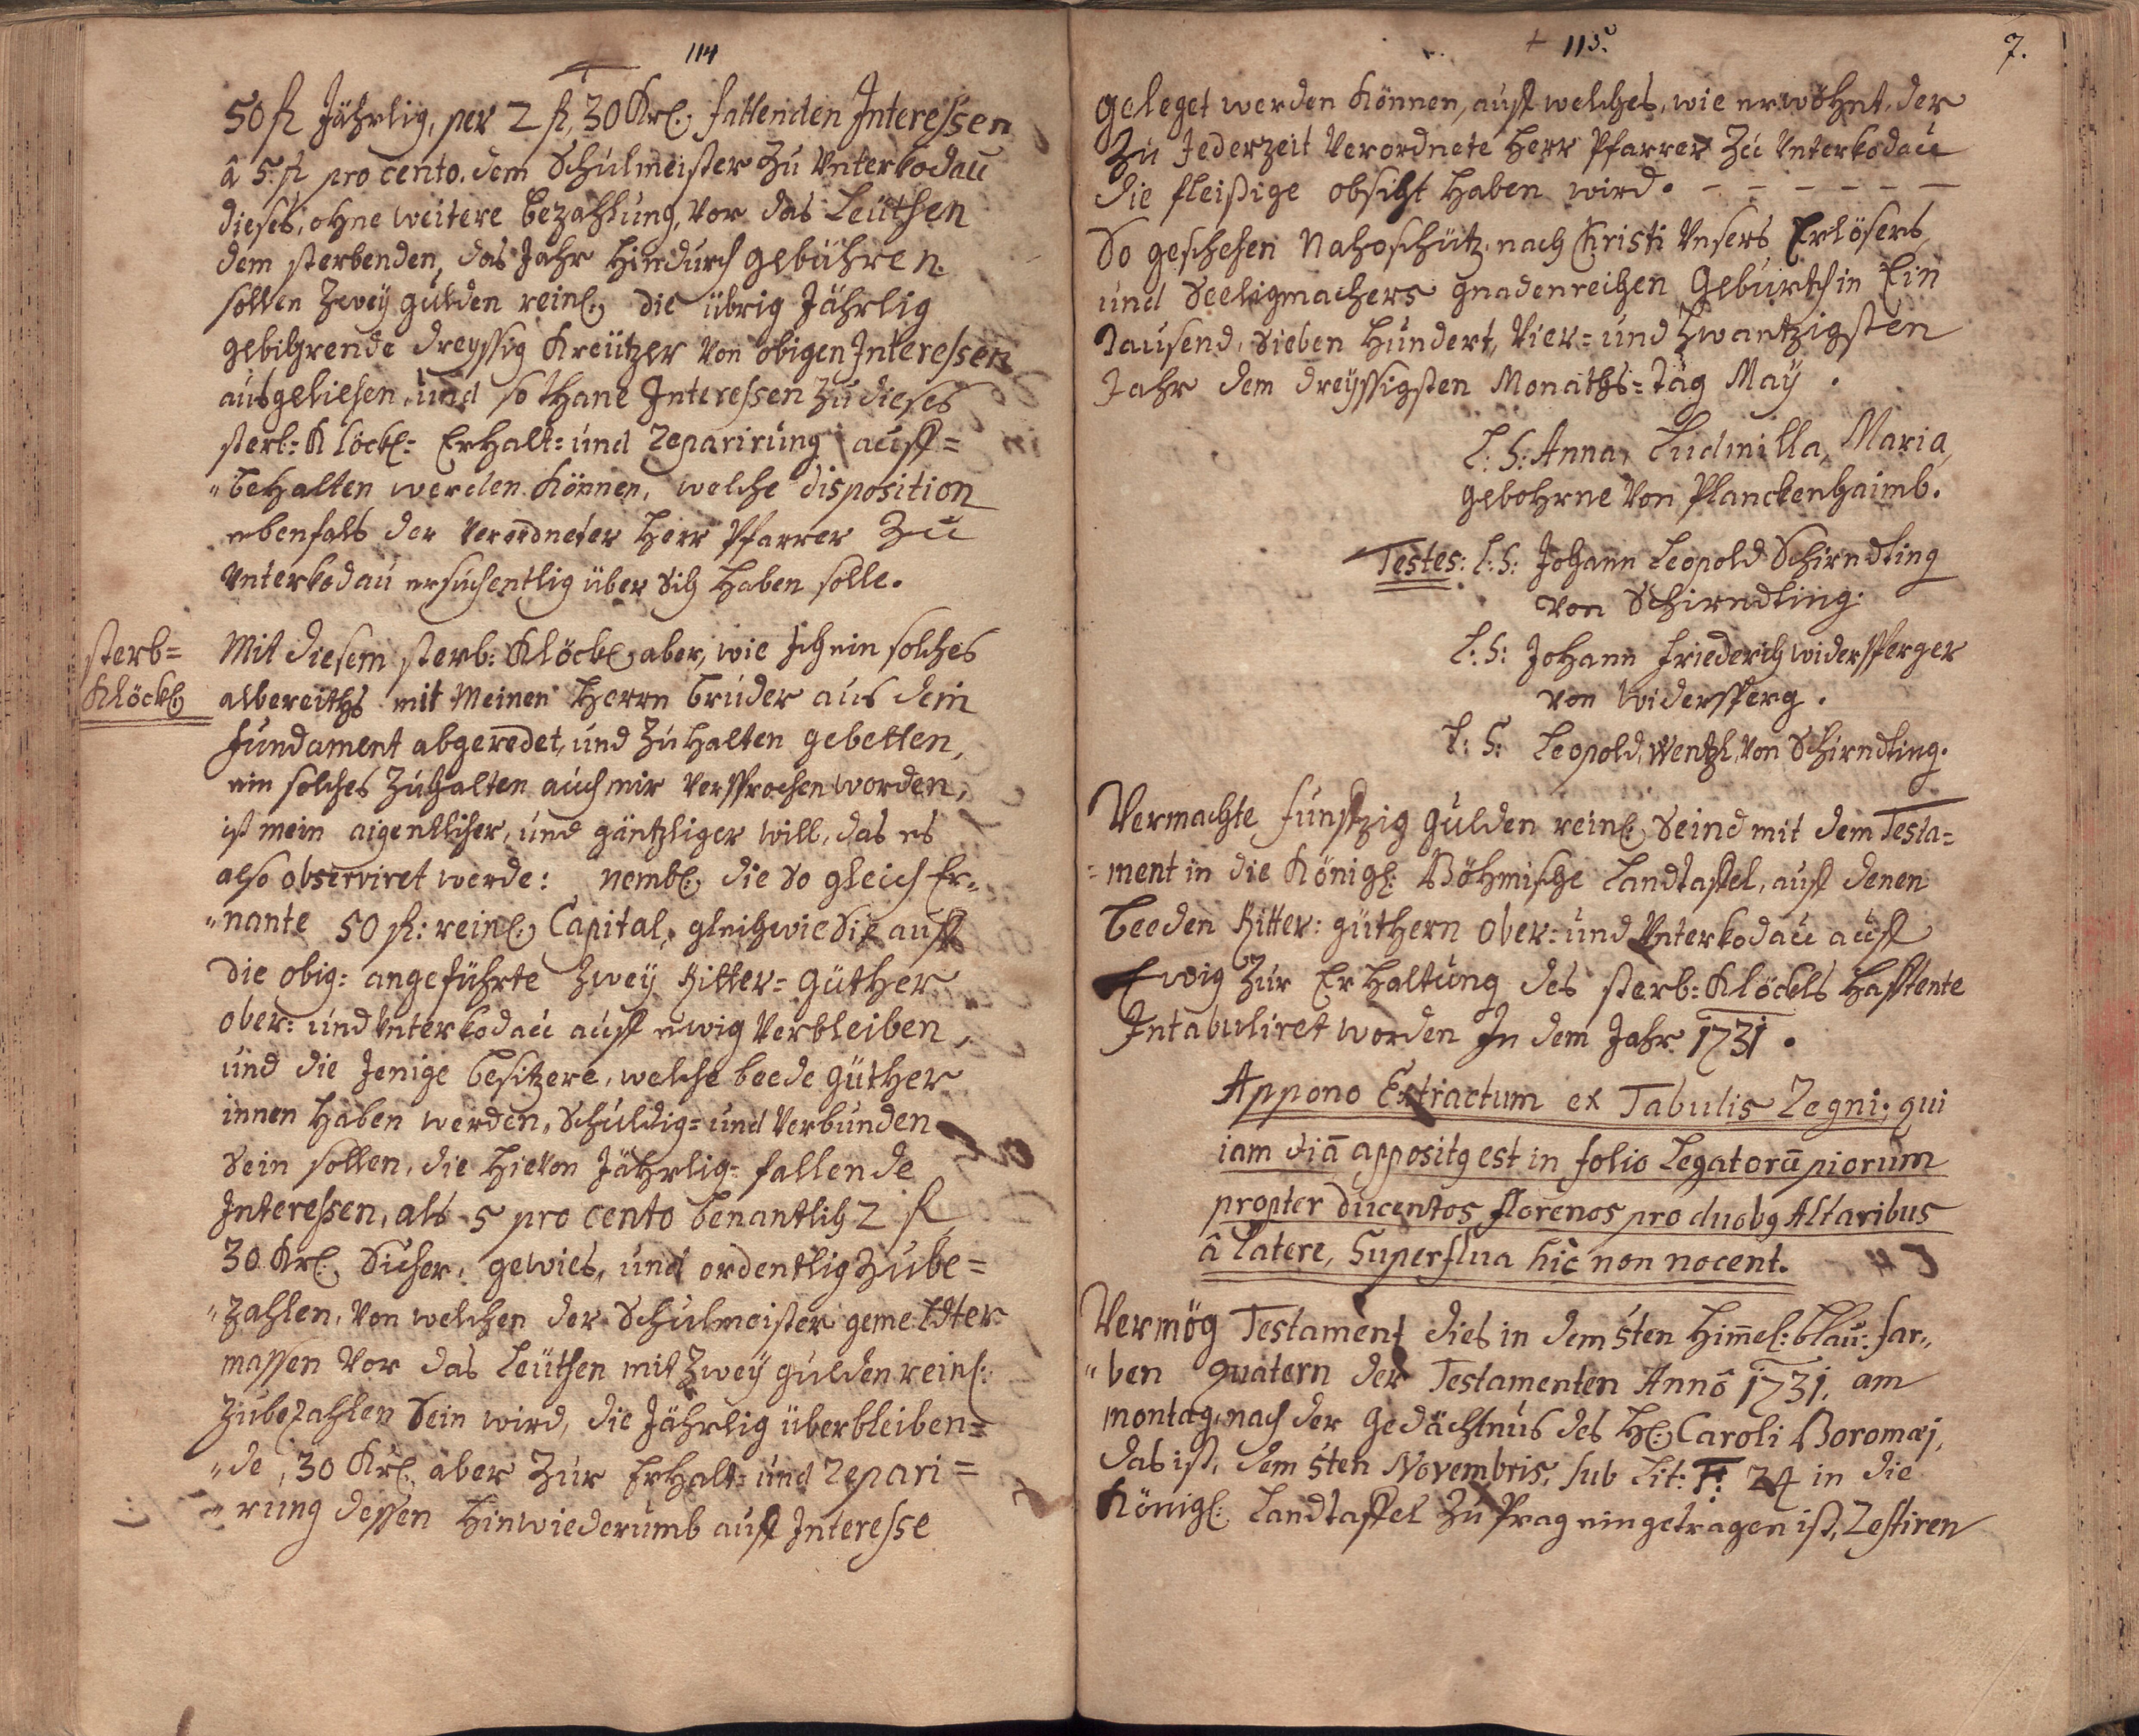 114
50 fl Jährlig, per 2 fl, 30 Krl: fallenden Interessen
â 5. fl pro cento. dem Schulmeister zu Unterkodau
dieses, ohne weitere bezahlung, vor das Leüthen
dem sterbenden, das Jahr hindurch gebühren
sollen Zweÿ gulden reinl: die übrig Jährlig
gebührende dreyssig Kreützer von obigen Interessen
ausgeliehen, und sothane Interessen zu dieses
sterb=Klöckl= Erhalt= und reparirung auff=
"behalten werden können, welche disposition
ebenfals der verordneter Herr Pfarrer zu
Unterkodau ersuchentlig über sich haben solle.
sterb=
Klöckl:
Mit diesem sterb: Klöckl: aber, wie Ich ein solches
albereiths mit Meinen Herrn bruder aus dem
fundament abgeredet, und zu halten gebetten,
ein solches zuhalten auch mir versprochen worden,
ist mein aigentlicher, und gäntzliger will, das es
also observiret werde: nembl: die so gleich Er=
"nante 50 fl: reinl: Capital, gleichwie Sie auff
die obig= angeführte Zweÿ Ritter= Güther
ober= und Unterkodau auff ewig verbleiben,
und die Jenige besitzere, welche beede güther
innen haben werden, schuldig= und verbunden
sein sollen, die hievon Jährlig= fallende
Interessen, als 5 pro cento benantlich 2 fl
30 Krl: sicher, gewies, und ordentlig zube=
"zahlen, von welchen der Schulmeister gemeldter
massen vor das Leüthen mit Zweÿ gulden reinl:
zubezahlen sein wird, die Jährlig überbleiben=
"de, 30 Krl: aber zur Erhalt= und repari=
"rung dessen hinwiederumb auff Interesse
115.
7.
geleget werden können, auff welches, wie erwöhnt, der
zu Jederzeit verordnete Herr Pfarrer zu Unterkodau
die fleißige obsicht haben wird. – – – – – –
So geschehen Nahoschütz nach Christi Unsers Erlösers
und Seeligmachers gnadenreichen geburth in Ein
Tausend, Sieben Hundert, Vier= und Zwantzigsten
Jahr dem dreÿssigsten Monaths= Tag Maÿ.
L: S: Anna, Ludmilla, Maria,
gebohrne von Planckenhaimb.
Testes: L: S: Johann Leopold Schirndting
von Schirndting.
L: S: Johann Friederich widersperger
von widersperg.
L: S: Leopold, Wentzl, von Schirndting.
Vermachte funffzig gulden reinl: seind mit dem Testa=
=ment in die Königl: Böhmische Landtaffel, auff denen
beeden Ritter: güthern ober= und Unterkodau auff
Ewig zur Erhaltung des sterb=Klöckls hafftente
Intabuliret worden In dem Jahr 1731.
Appono Extractum ex Tabulis Regni, qui
iam diā appositg est in folio Legatorū piorum
propter ducentos florenos pro duobg Altaribus
â latere, Superflua hic non nocent.
Vermög Testament dies in dem 5ten Him̄el: blau: far=
"ben quatern der Testamenten Annô 1731, am
montag, nach der Gedächtnus des Hl: Caroli Boromæi,
das ist, dem 5ten Novembris, sub Lit: F: 24 in die
Königl: Landtaffel zu Prag eingetragen ist, Testiren